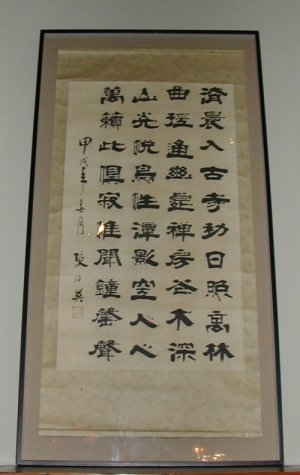 清晨入古寺初日照高林
曲徑通幽處禪房花木深
山光悅鳥性潭影空人心
萬籟此俱寂惟聞鐘磬聲
甲戌年春月 張伯英